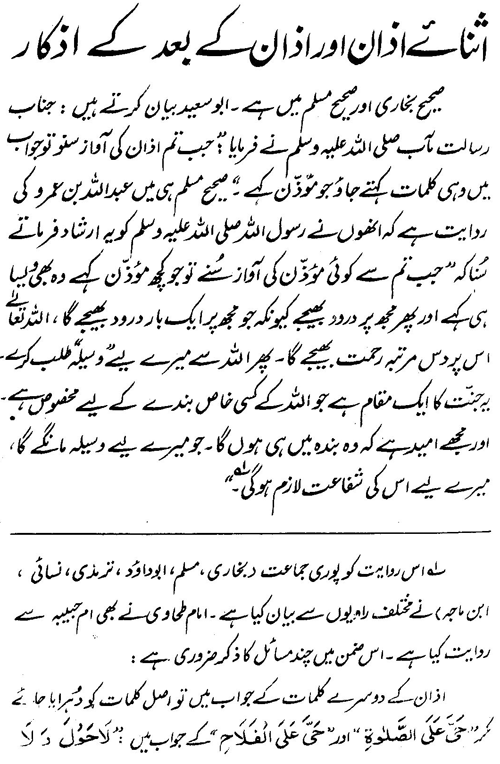 اثنائے اذان اور اذان کے بعد کے اذکار
صحیح بخاری اور صحیح مسلم میں ہے۔ ابو سعید بیان کرتے ہیں: جناب
رسالت مآب صلی اللہ علیہ وسلم نے فرمایا: "جب تم اذان کی آواز سنو تو جواب
میں وہی کلمات کہتے جاؤ جو مؤذّن کہے۔" صحیح مسلم ہی میں عبداللہ بن عمرو کی
روایت ہے کہ انھوں نے رسول اللہ صلی اللہ علیہ وسلم کو یہ ارشاد فرماتے
سُنا کہ "جب تم سے کوئی مؤذّن کی آواز سُنے تو جو کچھ مؤذّن کہے وہ بھی ویسا
ہی کہے اور پھر مجھ پر درود بھیجے کیونکہ جو مجھ پر ایک بار درود بھیجے گا، اللہ تعالیٰ
اس پر دس مرتبہ رحمت بھیجے گا۔ پھر اللہ سے میرے لیے "وسیلہ" طلب کرے۔
یہ جنّت کا ایک مقام ہے جو اللہ کے کسی خاص بندے کے لیے مخصوص ہے۔
اور مجھے امید ہے کہ وہ بندہ میں ہی ہوں گا۔ جو میرے لیے وسیلہ مانگے گا،
میرے لیے اس کی شفاعت لازم ہوگی۔"؂۱
؂۱ اس روایت کو پوری جماعت (بخاری، مسلم، ابوداؤد، ترمذی، نسائی،
ابن ماجہ) نے مختلف راویوں سے بیان کیا ہے۔ امام طحاوی نے بھی ام حبیبہ سے
روایت کیا ہے۔ اس ضمن میں چند مسائل کا ذکر ضروری ہے:
اذان کے دوسرے کلمات کے جواب میں تو اصل کلمات کو دُہرایا جائے
مگر "حَیَّ عَلَی الصَّلٰوۃِ" اور "حَیَّ عَلَی الْفَلَاحِ" کے جواب میں: "لَاحَوْلَ وَلَا